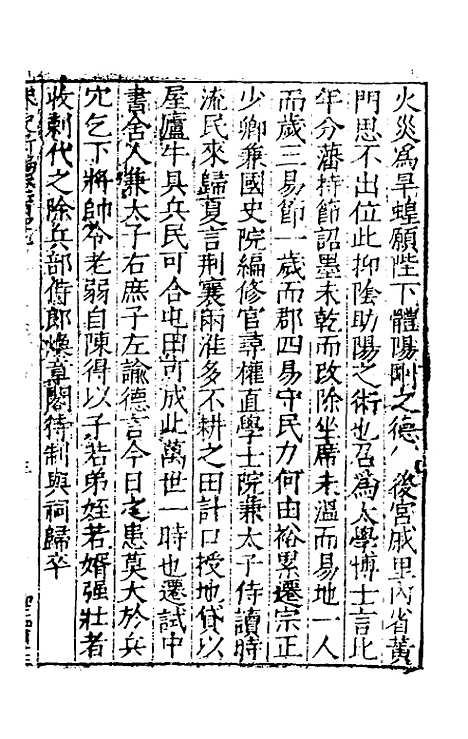 火災為旱蝗願陛下體陽剛之德 後宮戚里內省黃
門思不出位此抑陰助陽之術也召為太學博士言比
年分藩持節詔墨未乾而改除坐席未溫而易地一人
而歲三易節一歲而郡四易守民力何由裕累遷宗正
少卿兼國史院編修官尋權直學士院兼太子侍讀時
流民來歸夏言荆襄兩淮多不耕之田計口授地貸以
屋廬牛具兵民可合屯田可成此萬世一時也遷試中
書舍人兼太子右庶子左諭德言今日之患莫大於兵
冗乞下將帥令老弱自陳得以子若弟姪若婿強壯者
收刺代之除兵部侍郎煥章閣待制與祠歸卒